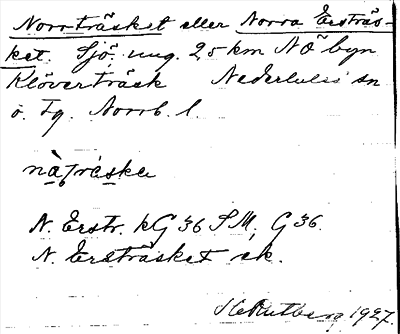 Norrträsket eller Norra Ersträs-
ket. Sjö, ung. 25 km NÖ byn
Klöverträsk Nederluleå sn
o. Fg. Norrb. l.
N. Erstr. kG 36 SM, G 36.
N. Ersträsket ek.
1927.